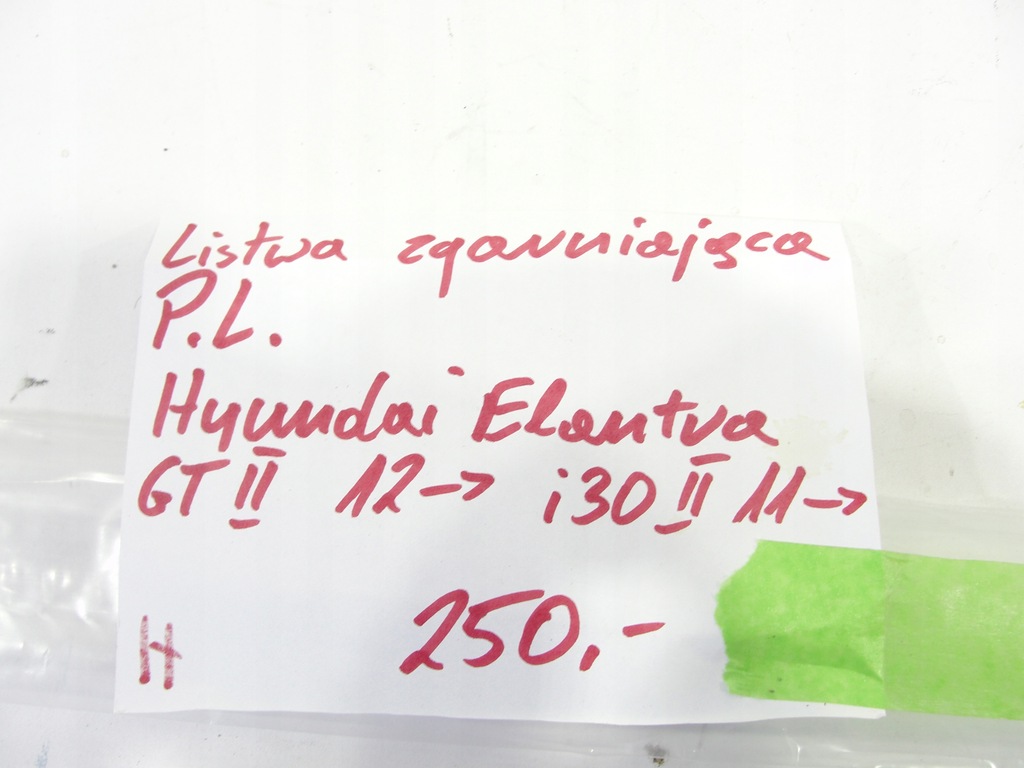 Listwa zgarniająca
P.L.
Hyundai Elantra
GT II 12-> i30 II 11->
250,-
H